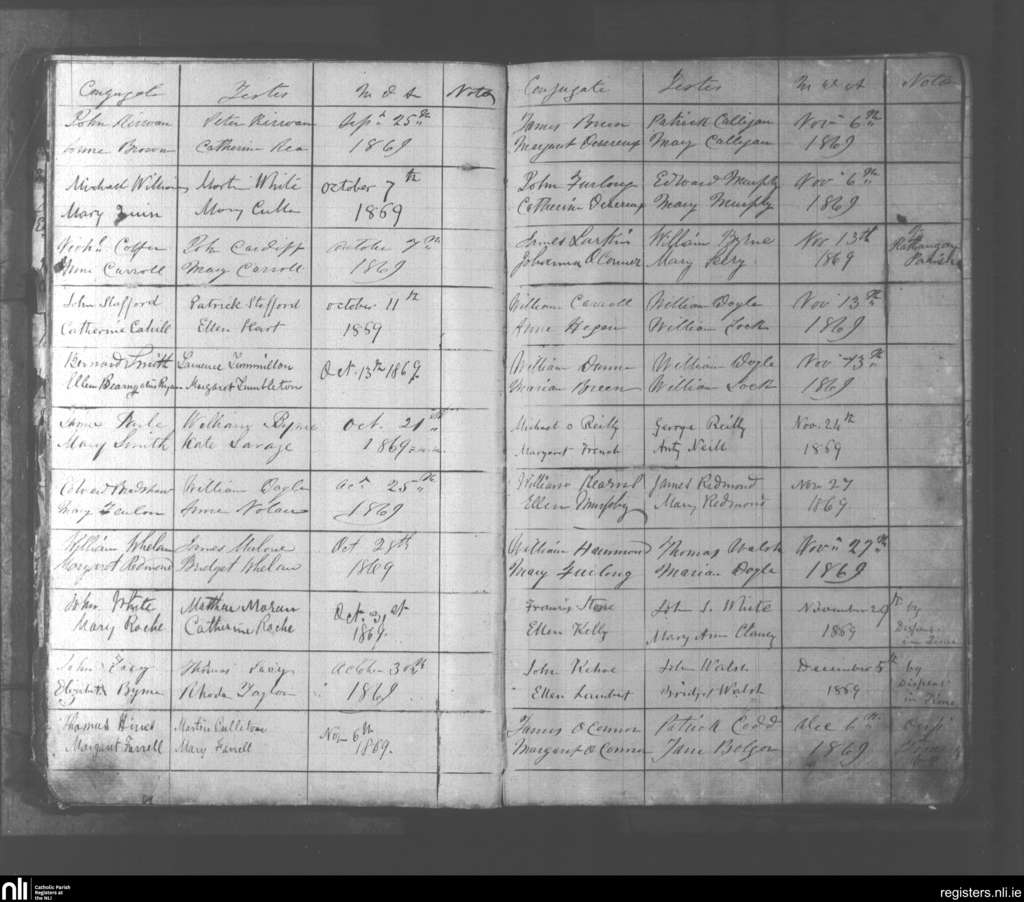 Conjugate Testes M d A Nota
John Kirwan Peter Kirwan Sep. 25th
Anne Brown Catherine Rea 1869
Michael William Martin White October 7th
Mary Quin Mary Culla 1869
Nichs. Coffer John Cardiff October 7th
Anne Carroll Mary Carroll 1869
John Stafford Patrick Stafford October 11th
Catherine Cahill Ellen Hart 1869
Bernard Smith Laurence Oct. 13th 1869
Ellen Ryan Margaret Tumbleton
William Byrne Oct. 21st
Mary Smith Kate Savage 1869
Edward Bradshaw William Doyle Oct 25th
Mary Anne Nolan 1869
William Whelan James Malone Oct. 28th
Margaret Redmond Bridget Whelan 1869
John White Matthew Moran Oct. 31st
Mary Roche Catherine Roche 1869.
John Thomas October 30th
Elizabeth Byrne Rhoda Taylor 1869
Thomas Hines Martin Culleton Nov 6th
Margaret Farrell Mary Farrell 1869.
Conjugate Testes M d A Nota
James Breen Patrick Calligan Nov 6th
Margaret Devereux Mary Calligan 1869
John Furlong Edward Murphy Nov 6th
Catherine Devereux Mary Murphy 1869
James Larkin William Byrne Nov 13th In Rathangan
Johanna O Connor Mary 1869 Parish
William Carroll William Doyle Nov 13th
Anne Hogan William Lock 1869
William Dunne William Doyle Nov 13th
Maria Breen William Lock 1869
Michael O Reilly George Reilly Nov. 24th
Margaret French Anty Neill 1869
William Kearns James Redmond Nov 27
Ellen Murphy Mary Redmond 1869
William Hammond Thomas Walsh Nov 27th
Mary Furlong Maria Doyle 1869
Francis Stone John S. White November by
Ellen Kelly Mary Ann Clancy 1869 Dispens in Time
John Kehoe John Walsh December 5th by
Ellen Lambert Bridget Walsh 1869 Dispens in Time
James O Connor Patrick Codd Dec 6th
Margaret O Connor Jane Bolger 1869
nli Catholic Parish
Registers at
the NLI
registers.nli.ie